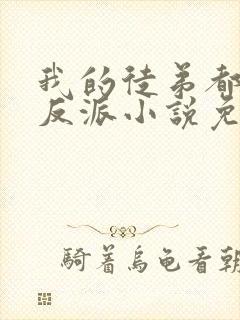 我的徒弟都
反派小說免
騎着烏龜看朝